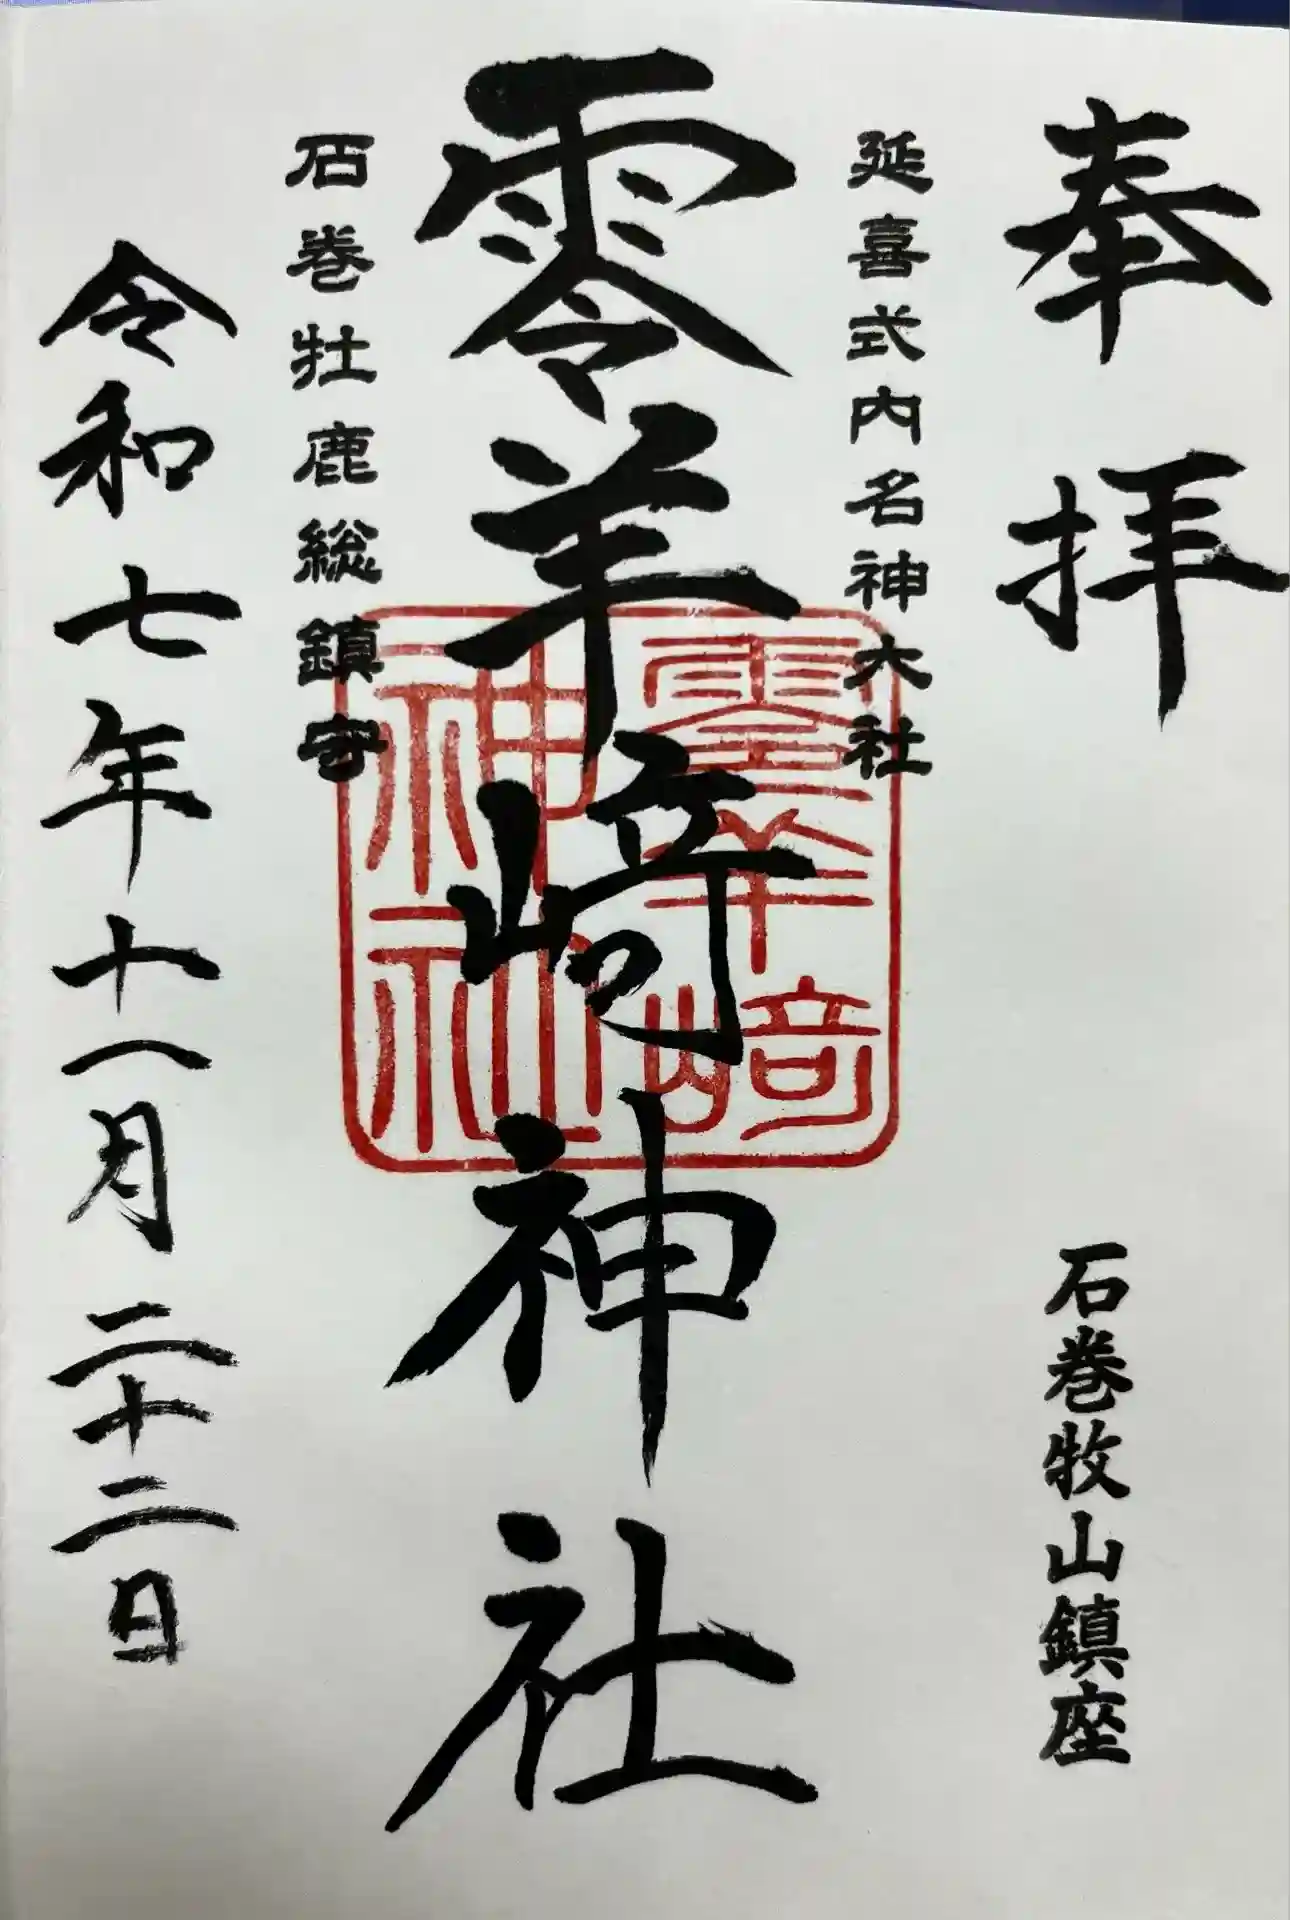 奉拝
石巻牧山鎮座
延喜式内名神大社
零羊崎神社
零羊崎
神社
石巻牡鹿総鎮守
令和七年十一月二十二日